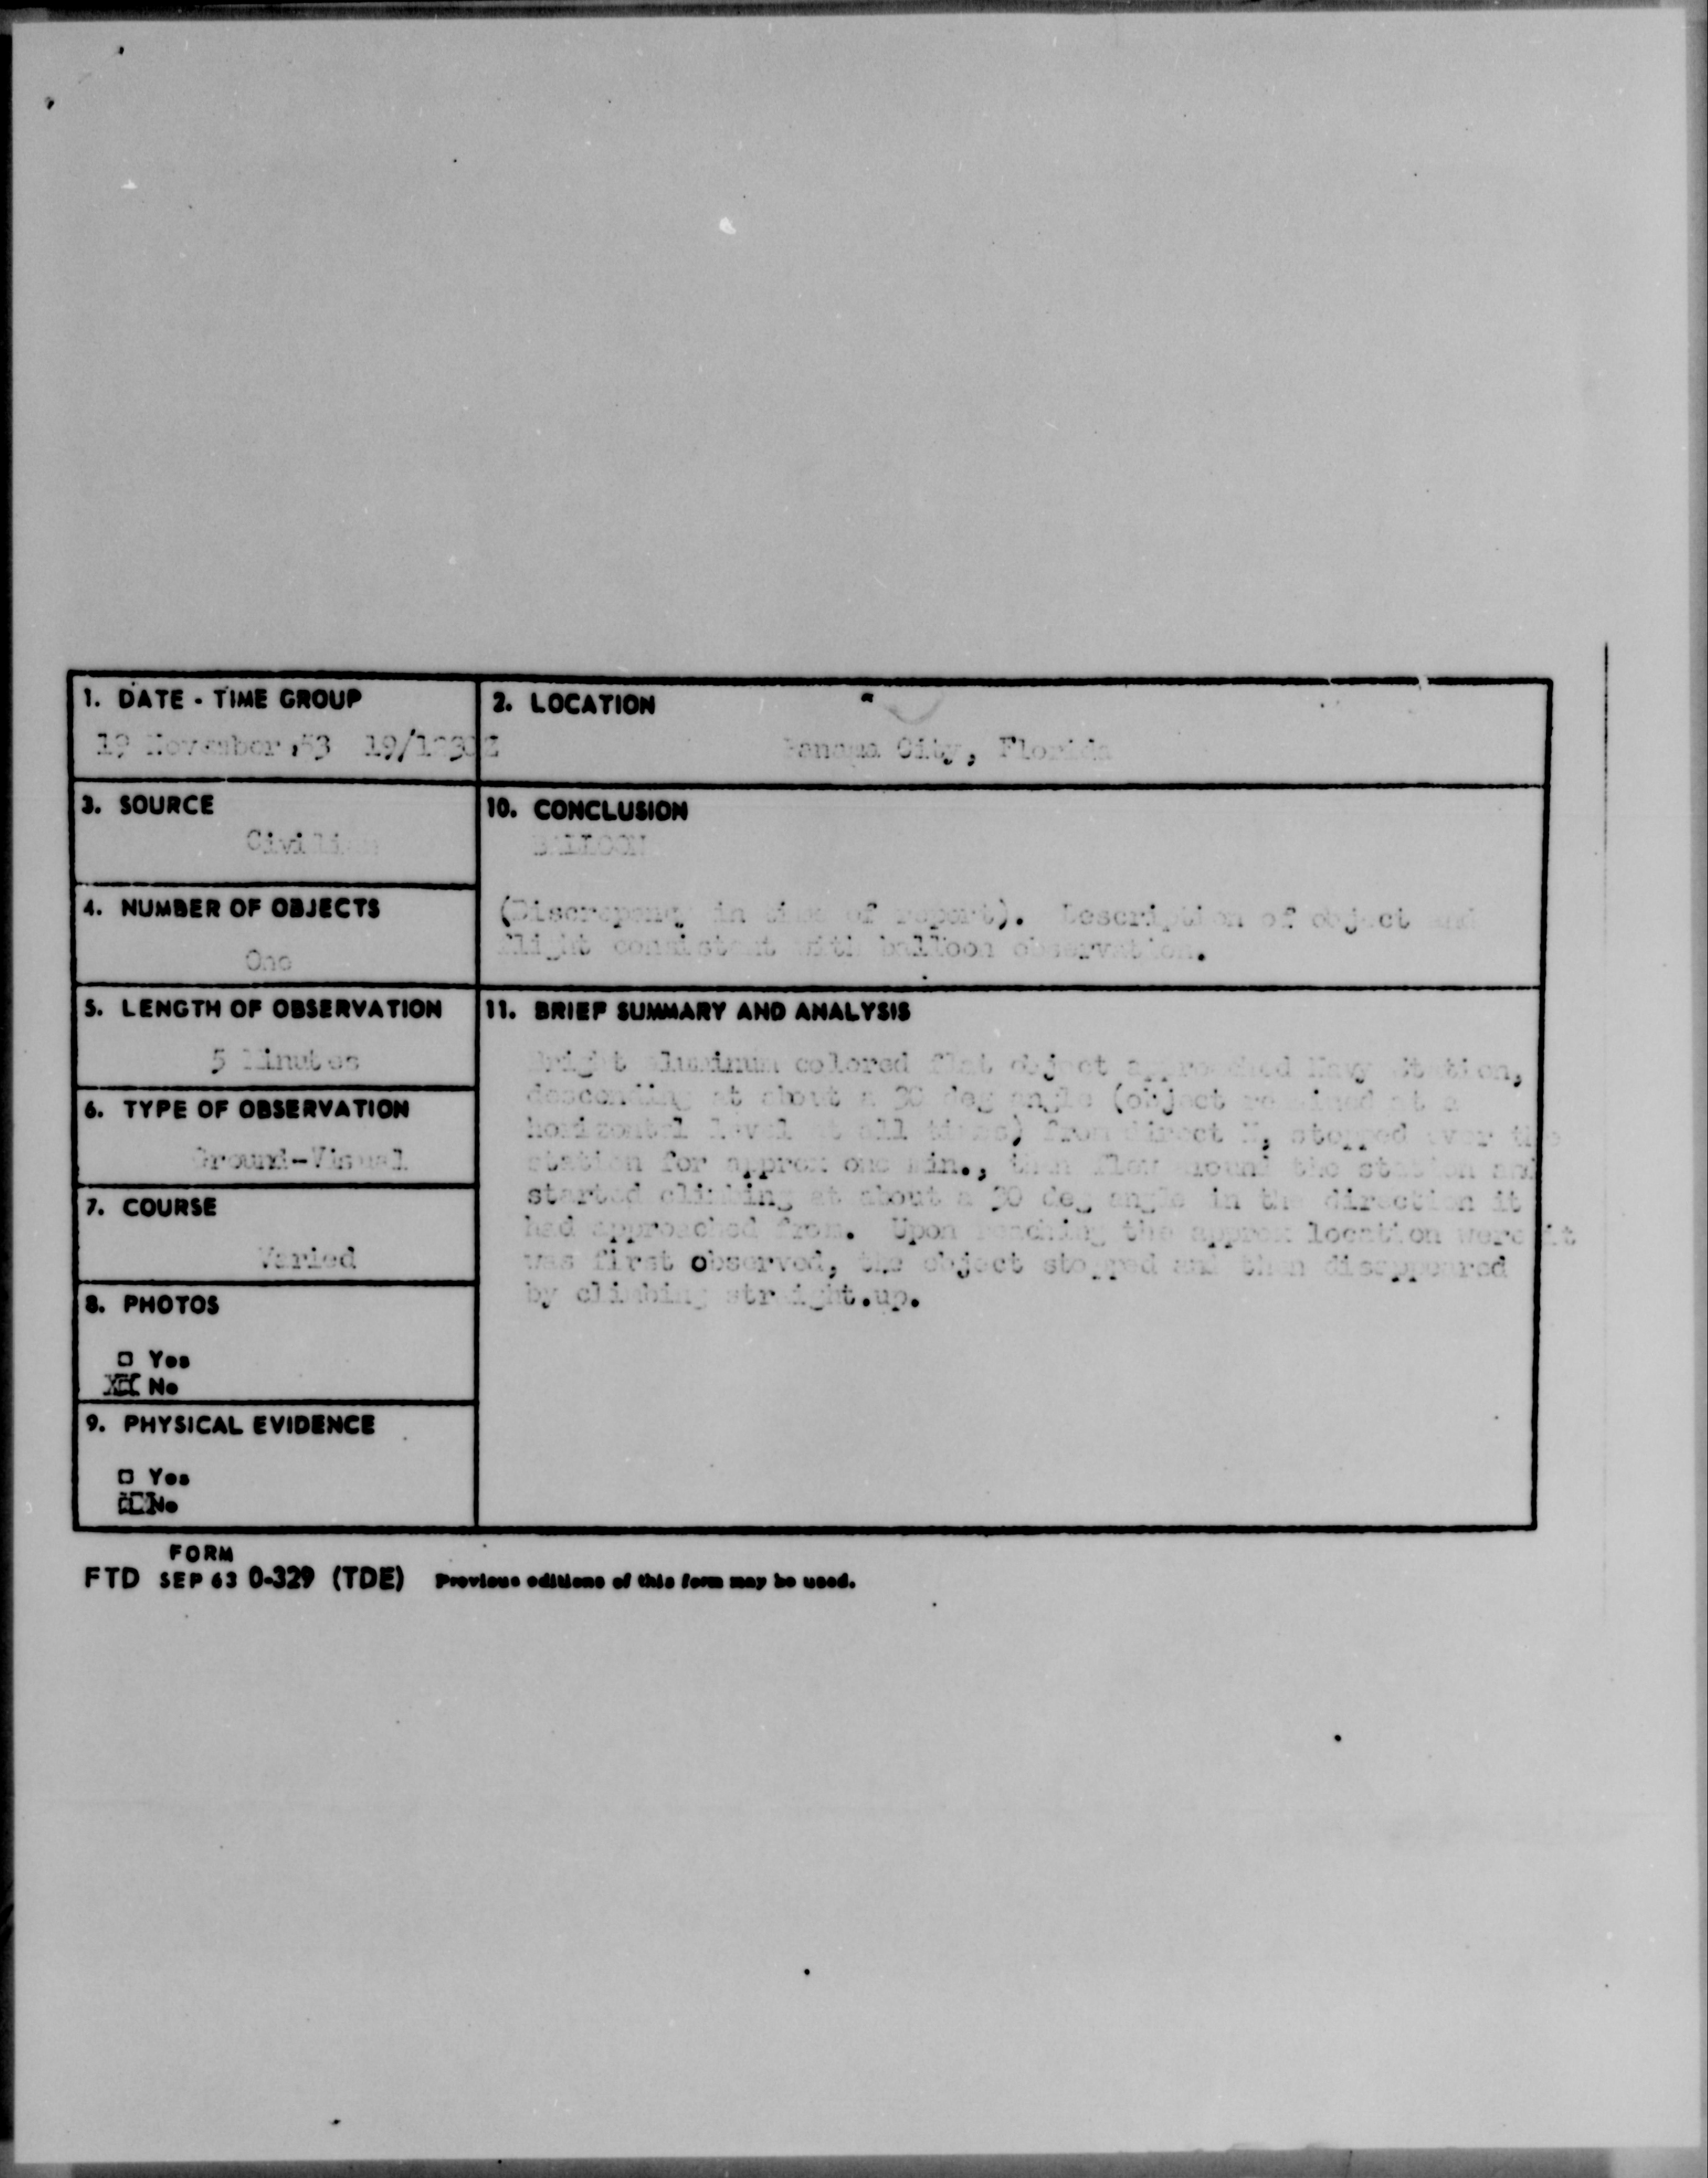 1. DATE - TIME GROUP
19 November 53 19/1830Z
2. LOCATION
Panama City, Florida
3. SOURCE
Civilian
10. CONCLUSION
BALLOON
(Discrepancy in time of report). Description of object and
flight consistent with balloon observation.
4. NUMBER OF OBJECTS
One
5. LENGTH OF OBSERVATION
5 Minutes
11. BRIEF SUMMARY AND ANALYSIS
Bright aluminum colored flat object approached Navy Station,
descending at about a 30 deg angle (object remained at a
horizontal level at all times) from direct N, stopped over the
station for approx one min., then flew around the station and
started climbing at about a 30 deg angle in the direction it
had approached from. Upon reaching the approx location were it
was first observed, the object stopped and then disappeared
by climbing straight.up.
6. TYPE OF OBSERVATION
Ground-Visual
7. COURSE
Varied
8. PHOTOS
□ Yes
☒ No
9. PHYSICAL EVIDENCE
□ Yes
☒ No
FORM
FTD SEP 63 0-329 (TDE) Previous editions of this form may be used.